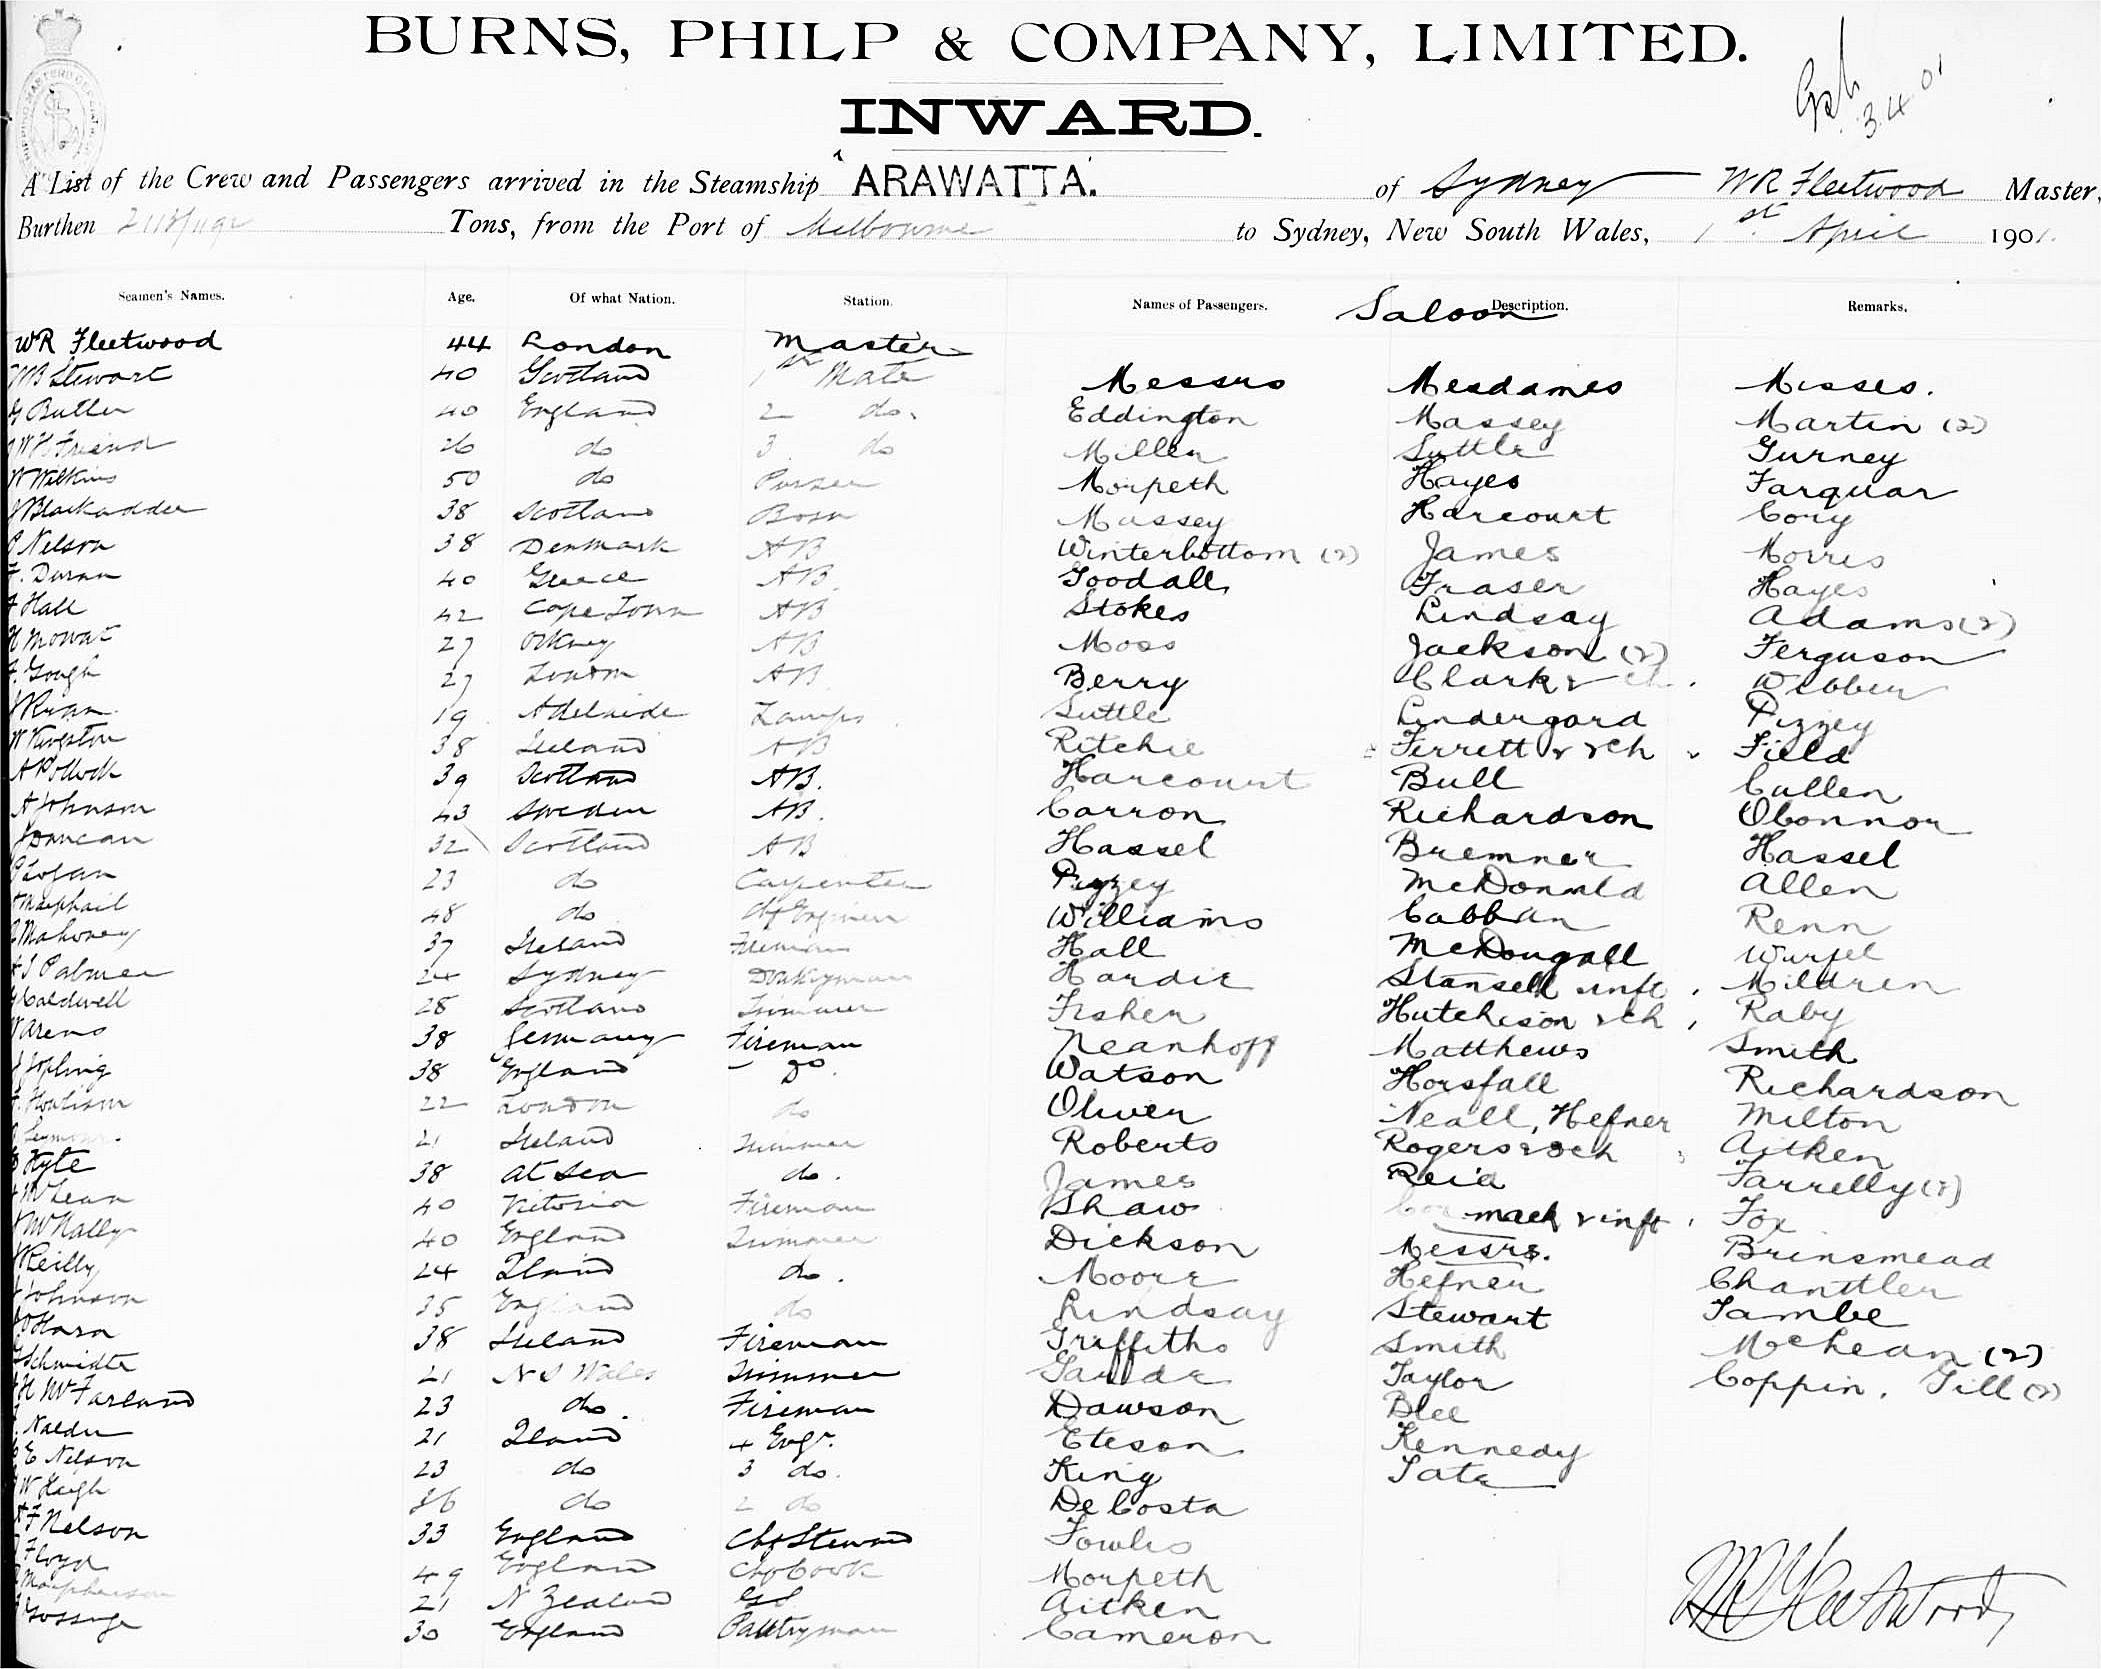 BURNS, PHILP & COMPANY, LIMITED.
INWARD.
3.4.01
A List of the Crew and Passengers arrived in the Steamship "ARAWATTA. of Sydney WR Fleetwood Master,
Burthen Tons, from the Port of Melbourne to Sydney, New South Wales, 1st April 1901.
Seamen's Names. Age. Of what Nation. Station. Names of Passengers. Saloon Description. Remarks.
WR Fleetwood 44 London Master
Stewart 40 Scotland 1st Mate Messrs Mesdames Misses.
G Butler 40 England 2 do. Eddington Massey Martin (2)
WH Friend 26 do 3 do Miller Suttle Gurney
W Wilkins 50 do Purser Morpeth Hayes Farquar
J Blackadder 38 Scotland Bosn Massey Harcourt Cory
P Nelson 38 Denmark AB Winterbottom (2) James Morris
F. Duran 40 Greece AB. Goodall Fraser Hayes
F Hall 42 Cape Town AB Stokes Lindsay Adams (2)
H Mowat 27 Orkney AB Moss Jackson (2) Ferguson
F. Gough 27 London AB. Berry Clark & ch. Webber
J Ryan 19 Adelaide Lamps Suttle Lindergard Pizzey
W Kingston 38 Ireland AB Ritchie Ferrett & ch Field
A Pollock 39 Scotland AB. Harcourt Bull Cullen
A Johnson 43 Sweden AB. Carron Richardson OConnor
J Duncan 32 Scotland AB Hassel Bremner Hassel
P Logan 23 do Carpenter Pizzey McDonald Allen
Macphail 48 do Chf Engineer Williams Cabban Renn
Mahoney 37 Ireland Fireman Hall McDougall Wurfel
A S Palmer 24 Sydney Donkeyman Hardie Stansell & inft, Mildren
Caldwell 28 Scotland Trimmer Fisher Hutchison & ch, Raby
Arens 38 Germany Fireman Neanhoff Matthews Smith
J Jopling 38 England Do. Watson Horsfall Richardson
22 London do Oliver Neall, Hefner Milton
Seymour 21 Ireland Trimmer Roberts Rogers & ch Aitken
Kyte 38 at Sea do. James Reid Farrelly (2)
McLean 40 Victoria Fireman Shaw Cormack & inft, Fox
McNally 40 England Trimmer Dickson Messrs. Brinsmead
Reilly 24 Qland do. Moore Hefner Chantler
J Johnson 35 England do Lindsay Stewart Tambe
OHara 38 Ireland Fireman Griffiths Smith McLean (2)
Schmidte 21 N S Wales Trimmer Gaude Taylor Coppin. Gill (2)
H McFarland 23 do. Fireman Dawson Blee
Nalder 21 Qland 4 Engr. Eteson Kennedy
E Nelson 23 do 3 do. King Tate
W Haigh 26 do 2 do De Costa
F Nelson 33 England Chf Steward Fowlis
Floyd 49 England Chf Cook Morpeth
Macpherson 21 N Zealand Aitken
Gossage 30 England Pantryman Cameron
WR Fleetwood